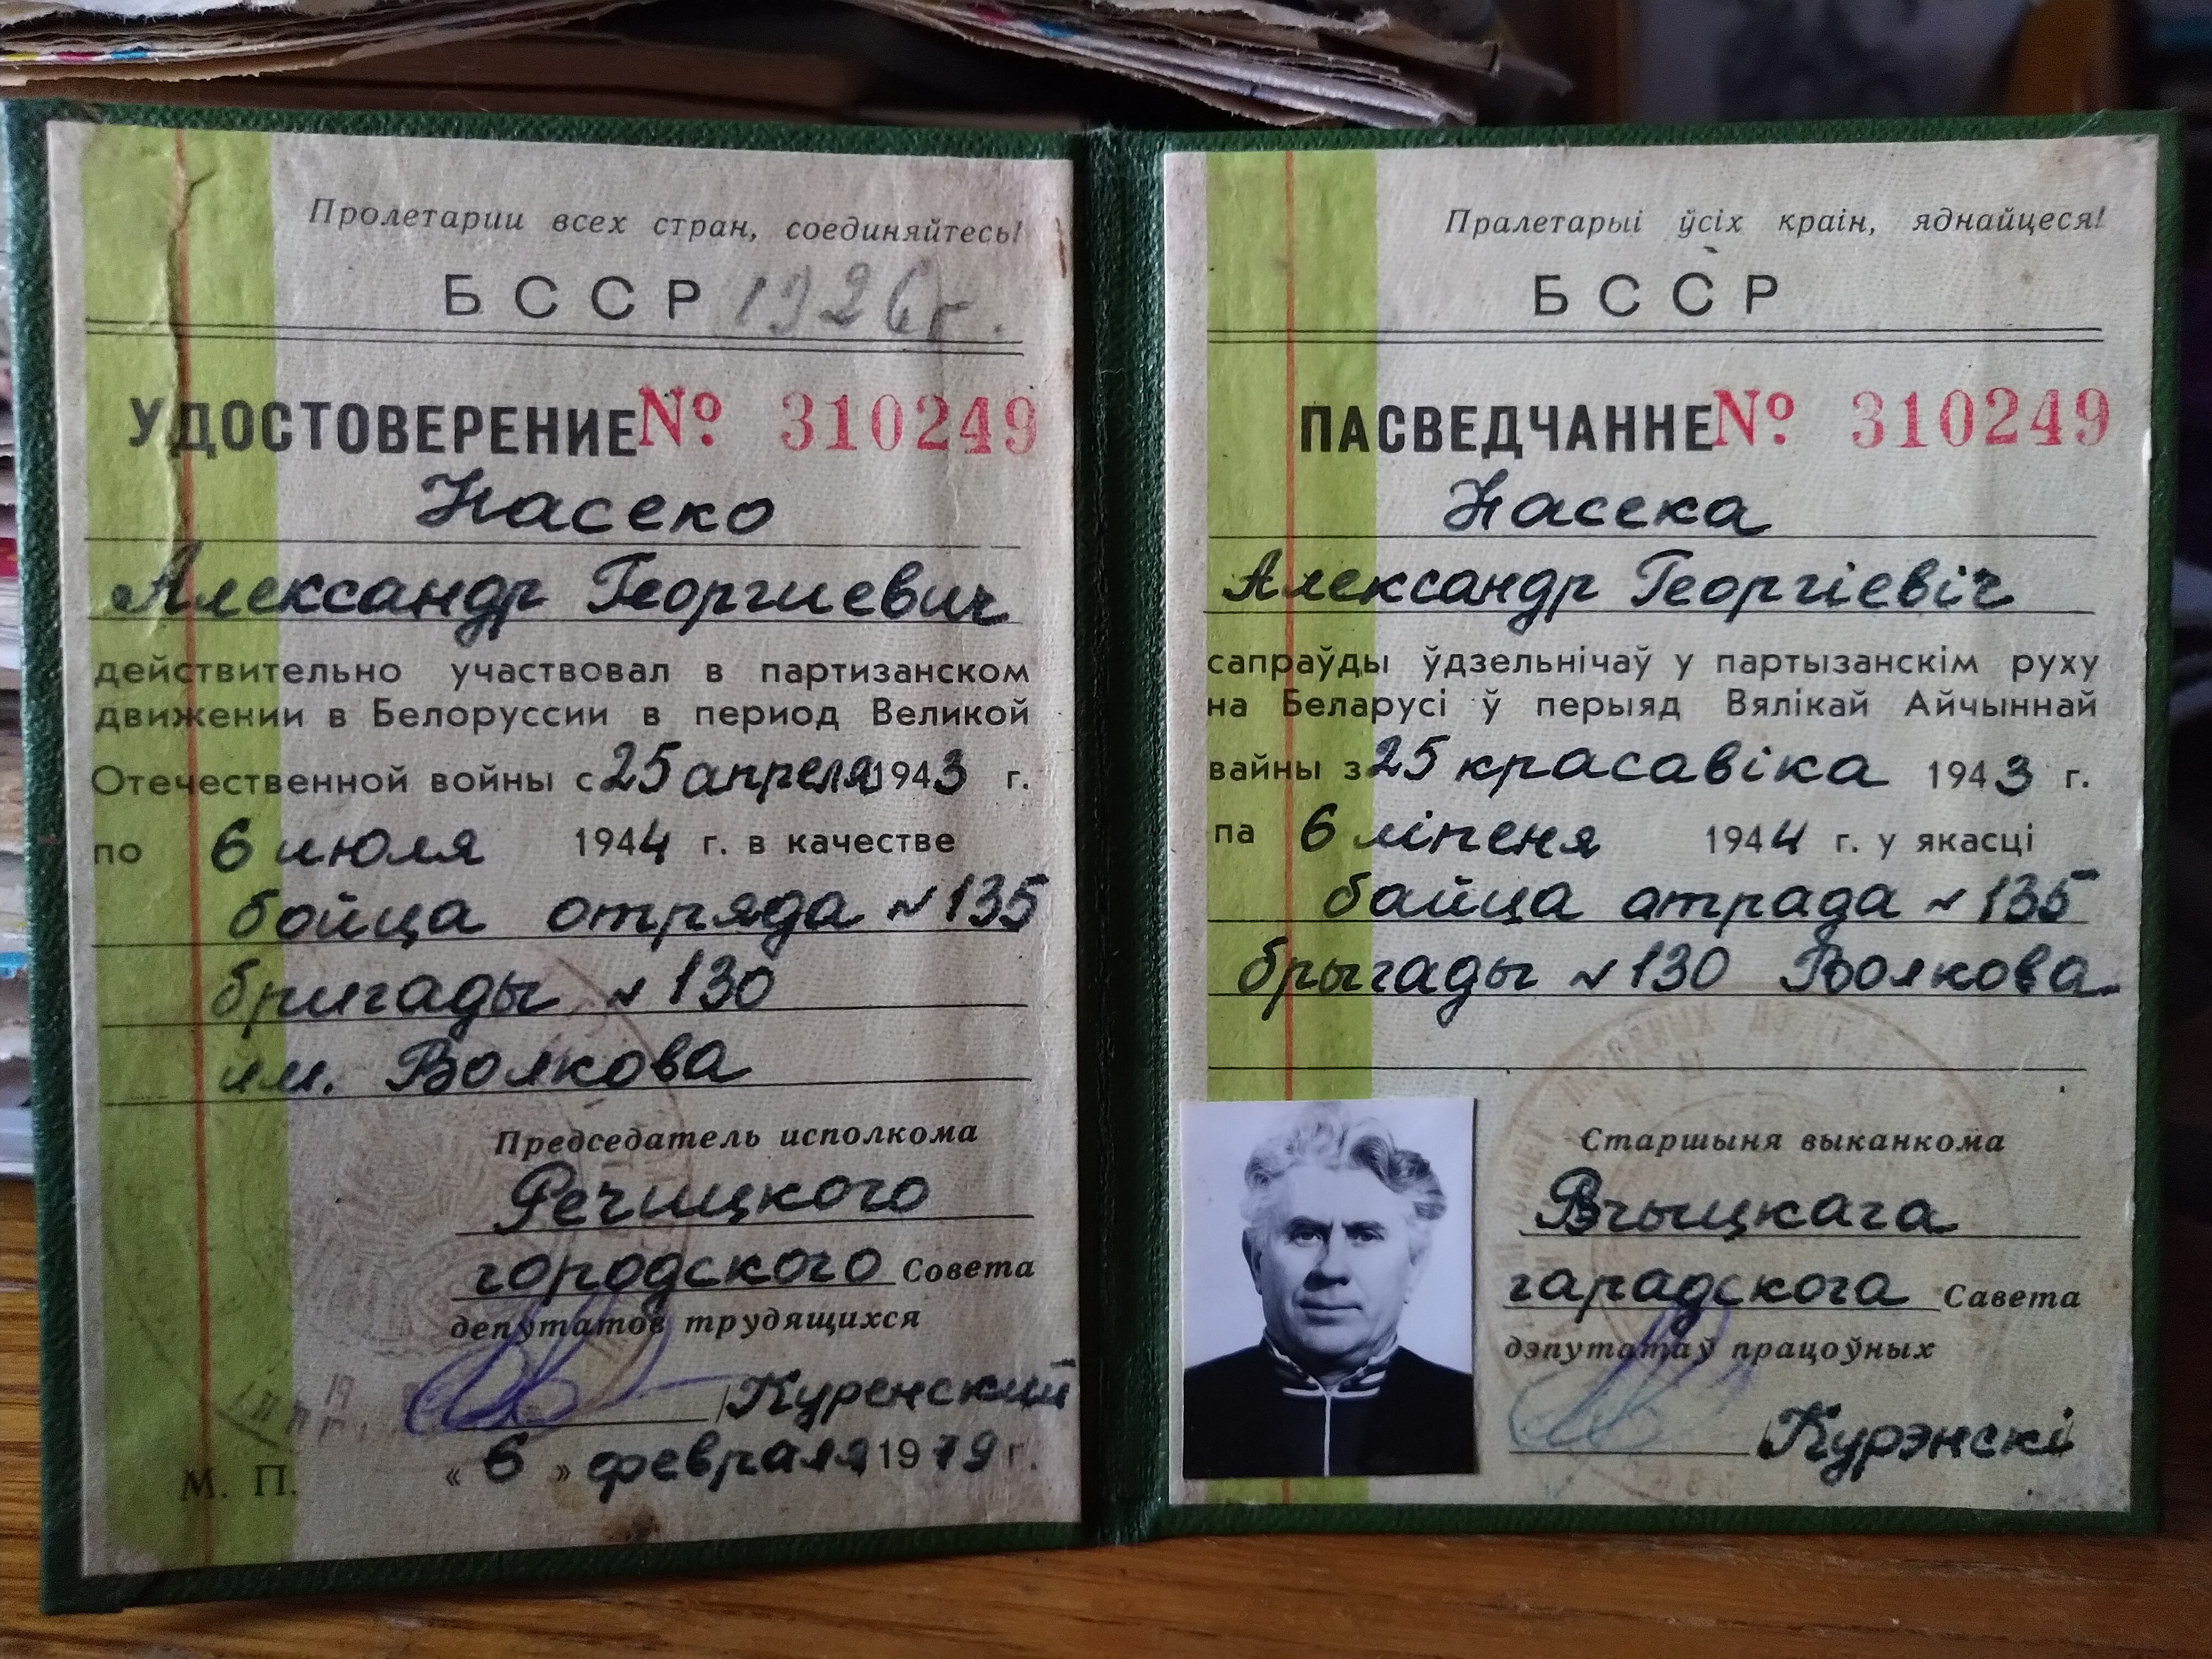 Пролетарии всех стран, соединяйтесь!
БССР 1926 г.
УДОСТОВЕРЕНИЕ № 310249
Насеко
Александр Георгиевич
действительно участвовал в партизанском
движении в Белоруссии в период Великой
Отечественной войны с 25 апреля 1943 г.
по 6 июля 1944 г. в качестве
бойца отряда № 135
бригады № 130
им. Волкова
Председатель исполкома
Речицкого
городского Совета
депутатов трудящихся
/Куренский
М. П. « 6 » февраля 1979 г.
Пралетарыі ўсіх краін, яднайцеся!
БССР
ПАСВЕДЧАННЕ № 310249
Насека
Александр Георгіевіч
сапраўды ўдзельнічаў у партызанскім руху
на Беларусі ў перыяд Вялікай Айчыннай
вайны з 25 красавіка 1943 г.
па 6 ліпеня 1944 г. у якасці
байца атрада № 135
брыгады № 130 Волкова
Старшыня выканкома
гарадскога Савета
дэпутатаў працоўных
/Курэнскі